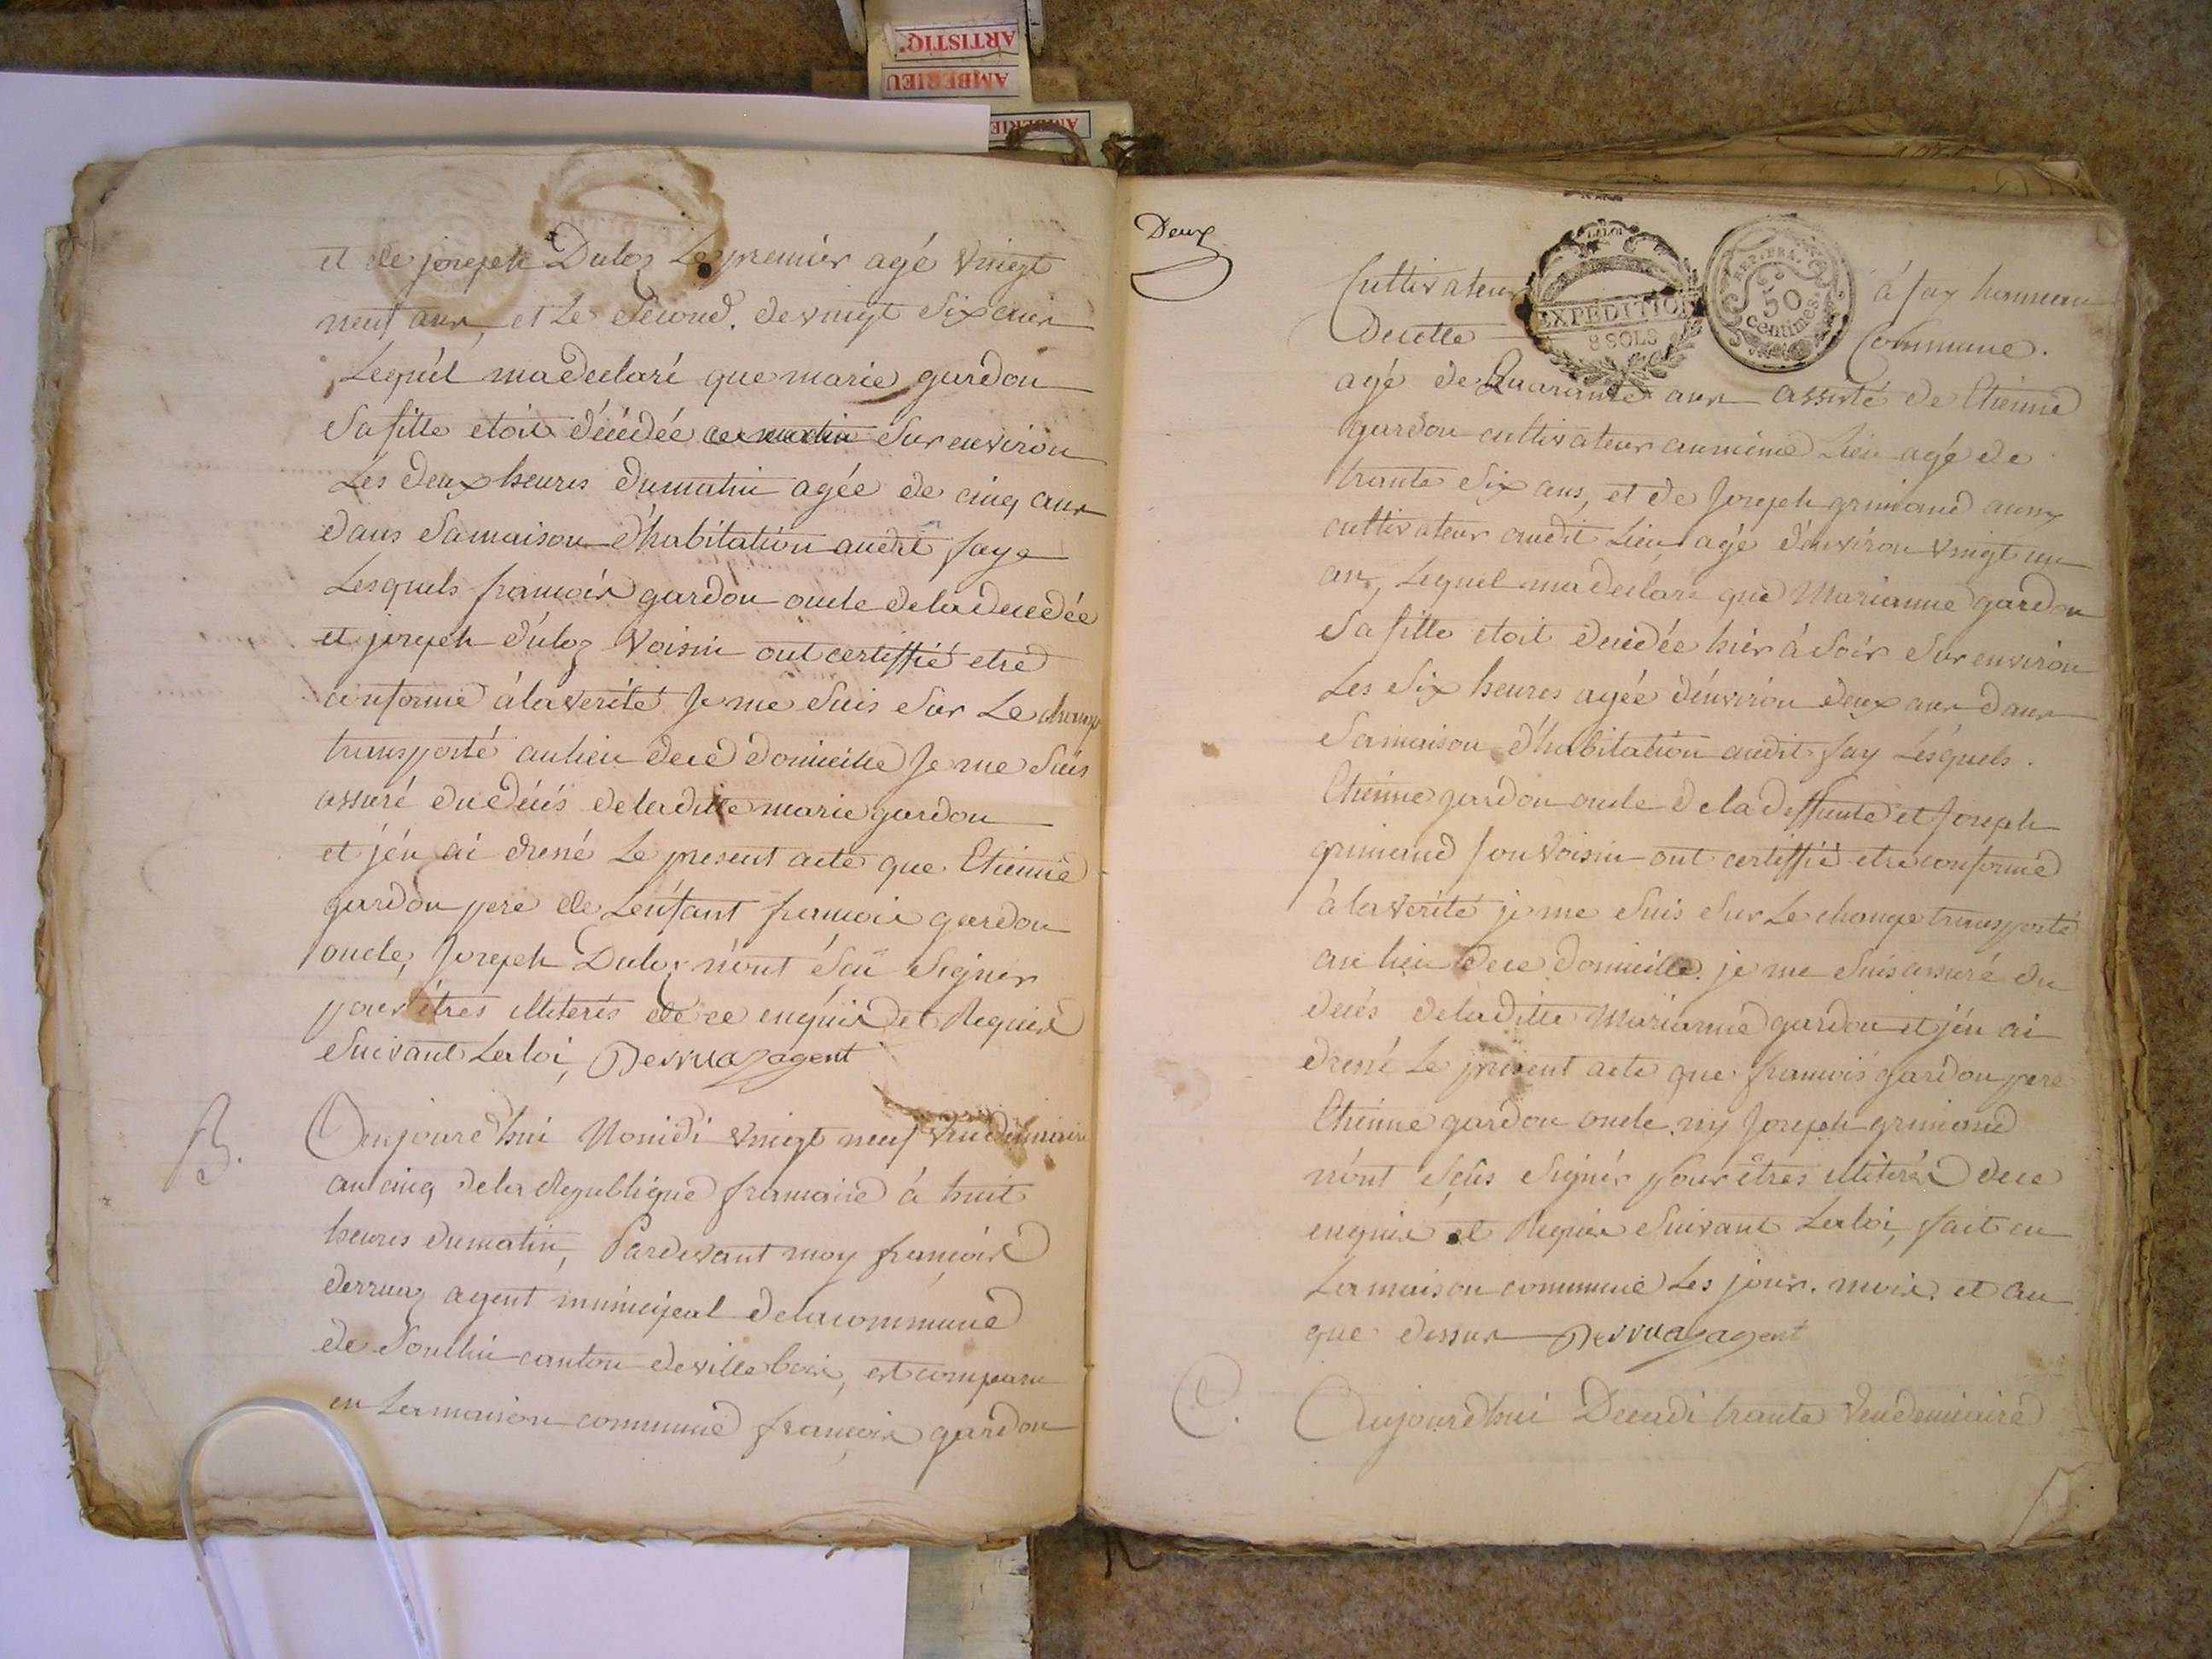 ARTISTIQ.
AMBERIEU
AMBERIE
et de joseph Duloz Le premier agé vingt
neuf ans, et Le Second. de vingt Six ans
Lequel ma declaré que marie gardon
Sa fille etoit décédée ce matin Sur environ
Les deux heures du matin agée de cinq ans
dans Sa maison d'habitation audit faye
Lesquels francois gardon oncle de la decedée
et joseph duloz voisin ont certiffié etre
conforme à la verité Je me Suis Sur Le champ
transporté au lieu de ce domicille Je me Suis
assuré du décés de laditte marie gardon
et j'en ai dressé Le present acte que Etienne
gardon pere de L'enfant francois gardon
oncle, Joseph Duloz n'ont Sçû Signer
pour êtres illiterés de ce enquis et Requis
Suivant La loi, Derruaz agent
B.
Aujourd'hui Nonidi vingt neuf vendemiaire
an cinq de la Republique francaise à huit
heures du matin, Pardevant moy françois
derruaz agent municipal de la commune
de Souclin canton de villebois, est comparu
en La maison commune françois gardon
Deux
Cultivateur à fay hameau
LA LOI
EXPEDITION
8 SOLS
REP. FRA.
50
centimes.
de cette Commune.
agé de Quarante ans assisté de Etienne
gardon cultivateur au même Lieu agé de
trante Six ans, et de Joseph grimand aussy
cultivateur audit Lieu agé d'environ vingt un
an, Lequel ma declaré que Marianne gardon
Sa fille etoit decedée hier à Soir Sur environ
Les Six heures agée d'environ deux ans dans
Sa maison d'habitation audit fay Lesquels.
Etienne gardon oncle de la deffunte et Joseph
grimand Son voisin ont certiffié etre conforme
à la verité je me Suis Sur Le champ transporté
au lieu de ce domicille. je me Suis assuré du
decés de laditte Marianne gardon et j'en ai
dressé Le present acte que francois gardon pere
Etienne gardon oncle ny Joseph grimand
n'ont Sçûs Signer pour êtres illiterés de ce
enquis et Requis Suivant La loi, fait en
La maison commune Les jour. mois. et an
que dessus Derruaz agent
C.
Aujourd'hui Decadi trante Vendemiaire